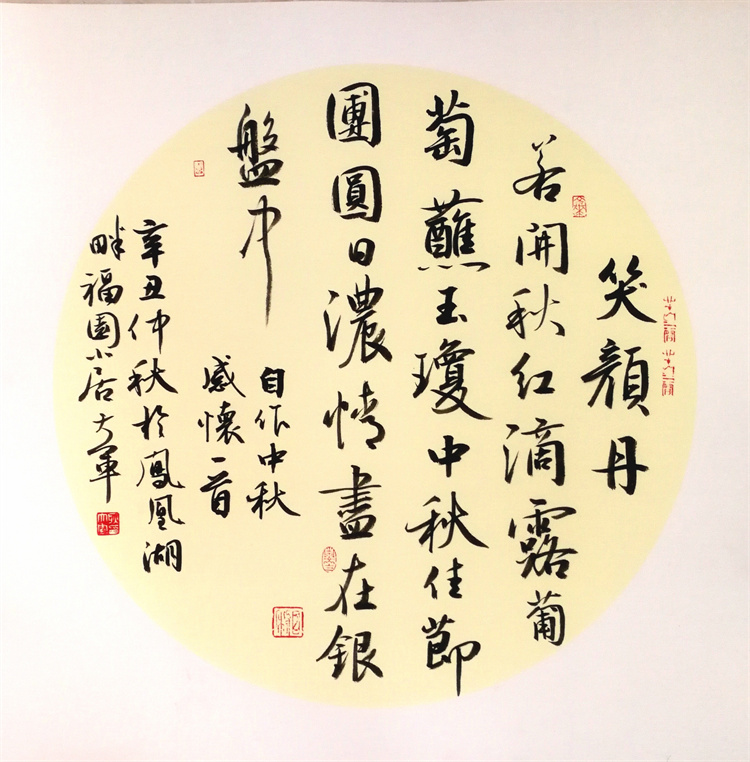 笑顏丹
若開秋紅滴露葡
萄蘸玉瓊中秋佳節
團圓日濃情盡在銀
盤中
自作中秋
感懷一首
辛丑仲秋於鳳凰湖
畔福園小居大軍